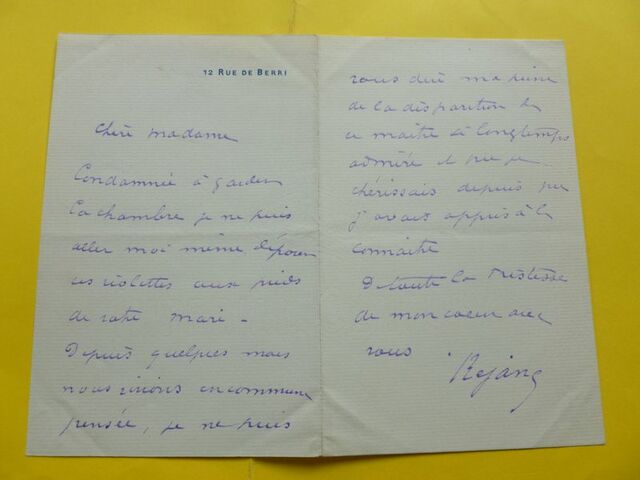 12 RUE DE BERRI
Chère madame
Condamnée à garder
la chambre je ne puis
aller moi même déposer
ces violettes aux pieds
de votre mari -
Depuis quelques mois
nous vivions en commune
pensée, je ne puis
vous dire ma peine
de la disparition de
ce maître si longtemps
admiré et que je
chérissais depuis que
j'avais appris à le
connaitre
De toute la tristesse
de mon coeur avec
vous Réjane